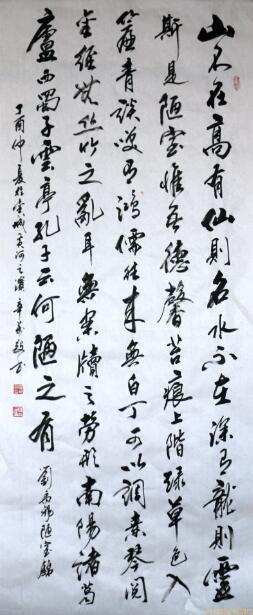 山不在高有仙則名水不在深有龍則靈
斯是陋室惟吾德馨苔痕上階綠草色入
簾青談笑有鴻儒往来無白丁可以調素琴閱
金經無絲竹之亂耳無案牘之勞形南陽諸葛
廬西蜀子雲亭孔子云何陋之有 劉禹錫陋室銘
丁酉仲夏於城黃河之濱書